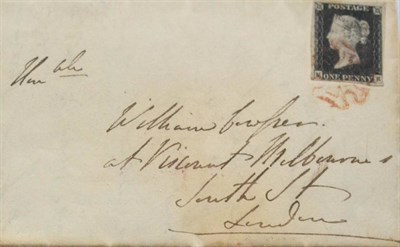 POSTAGE
ONE PENNY
Honble
William Cowper
at Viscount Melbourne's
South St
London